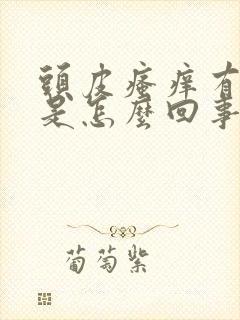 頭皮瘙痒有
是怎麽回事
葡萄紫